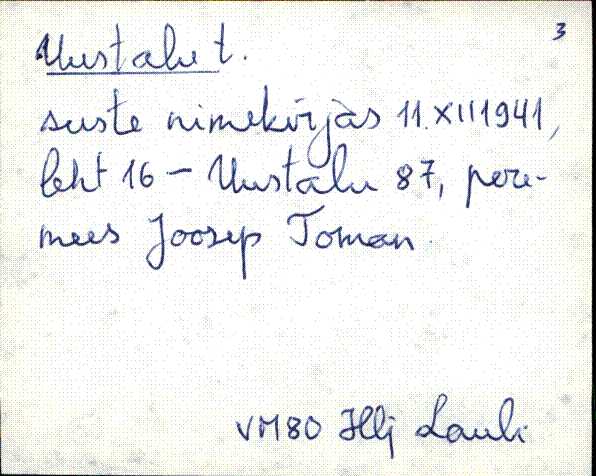 3
Uustalu t.
suste nimekirjas 11.XII 1941,
leht 16 – Uustalu 87, pere-
mees Joosep Toman.
VM80 Illj Lauli